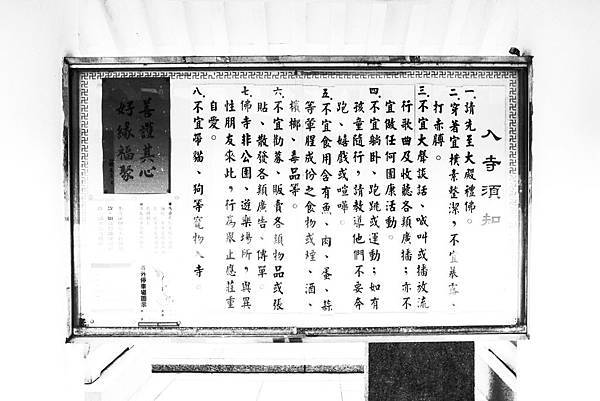 入寺須知
一.請先至大殿禮佛。
二.穿著宜樸素整潔，不宜暴露、
打赤膊。
三.不宜大聲談話、喊叫或播放流
行歌曲及收聽各類廣播；亦不
宜做任何團康活動。
四.不宜躺臥、跑跳或運動；如有
孩童隨行，請教導他們不要奔
跑、嬉戲或喧嘩。
五.不宜食用含有魚、肉、蛋、蒜
等葷腥成份之食物或煙、酒、
檳榔、毒品等。
六.不宜勸募、販賣各類物品或張
貼、散發各類廣告、傳單。
七.佛寺非公園、遊樂場所，與異
性朋友來此，行為舉止應莊重
自愛。
八.不宜帶貓、狗等寵物入寺。
善護其心
好緣福聚
寺外停車場圖示